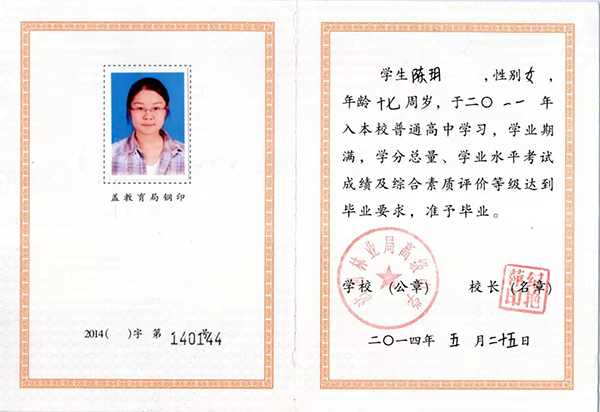 盖教育局钢印
2014( )字 第 140144 号
学生 陈玥 ,性别女,
年龄 十七 周岁,于二〇一一年
入本校普通高中学习,学业期
满,学分总量、学业水平考试
成绩及综合素质评价等级达到
毕业要求,准予毕业。
林业局高级中学
学校 (公章) 校长 (名章)
二〇一四年 五 月二十五日